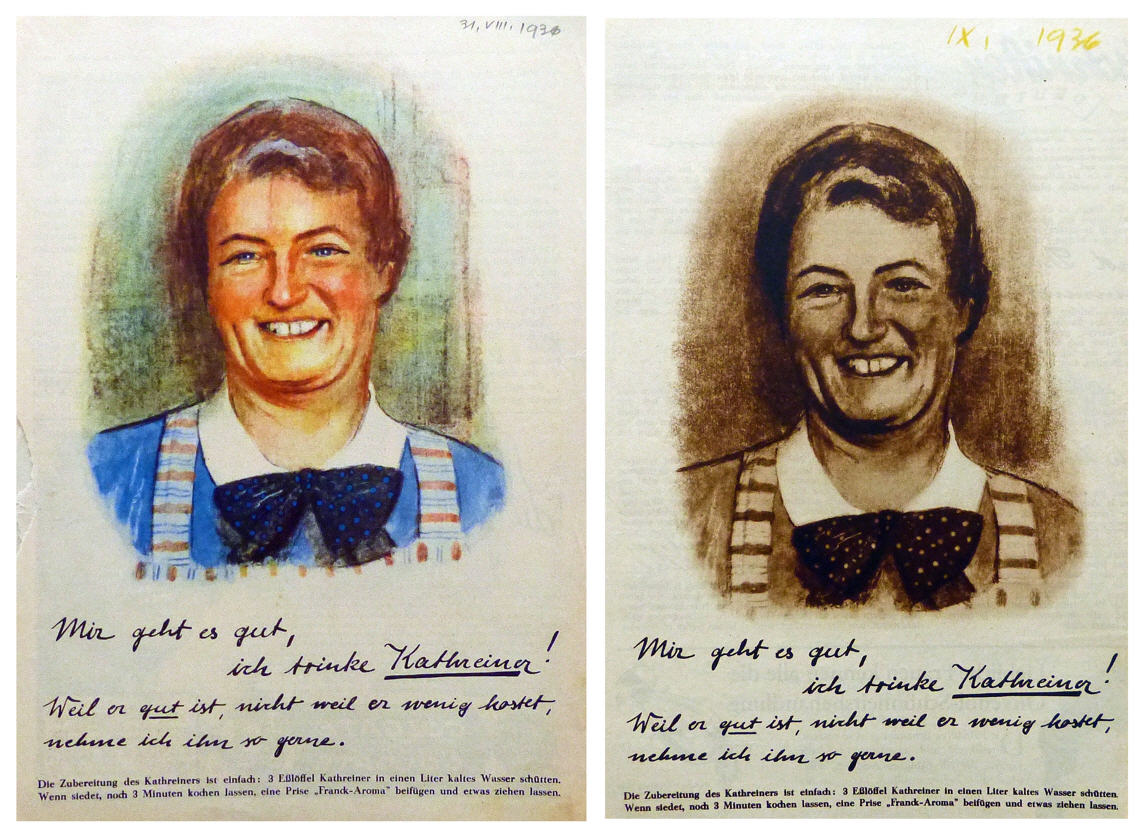 31. VIII. 1936
Mir geht es gut,
ich trinke Kathreiner!
Weil er gut ist, nicht weil er wenig kostet,
nehme ich ihn so gerne.
Die Zubereitung des Kathreiners ist einfach: 3 Eßlöffel Kathreiner in einen Liter kaltes Wasser schütten.
Wenn siedet, noch 3 Minuten kochen lassen, eine Prise „Franck-Aroma" beifügen und etwas ziehen lassen.
IX. 1936
Mir geht es gut,
ich trinke Kathreiner!
Weil er gut ist, nicht weil er wenig kostet,
nehme ich ihn so gerne.
Die Zubereitung des Kathreiners ist einfach: 3 Eßlöffel Kathreiner in einen Liter kaltes Wasser schütten.
Wenn siedet, noch 3 Minuten kochen lassen, eine Prise „Franck-Aroma" beifügen und etwas ziehen lassen.